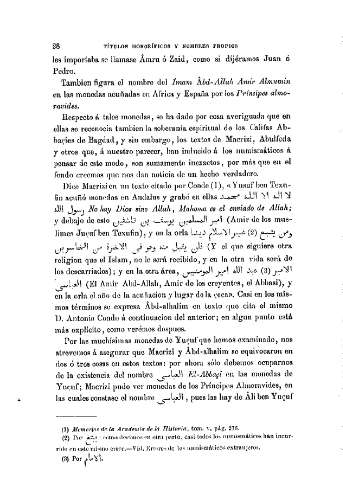 28 TÍTULOS HONORÍFICOS Y NOMBRES PROPIOS
les importaba se llamase Ámru ó Zaid, como si dijéramos Juan ó
Pedro.
Tambien figura el nombre del Imam Ábd-Allah Amir Almumin
en las monedas acuñadas en Africa y España por los Príncipes almo-
ravides.
Respecto á tales monedas, se ha dado por cosa averiguada que en
ellas se reconocia tambien la soberanía espiritual de los Califas Ab-
bacíes de Bagdad, y sin embargo, los textos de Macrizí, Abulfeda
y otros que, á nuestro parecer, han inducido á los numismáticos á
pensar de este modo, son sumamente inexactos, por más que en el
fondo creemos que nos dan noticia de un hecho verdadero.
Dice Macrizí en un texto citado por Conde (1), «Yusuf ben Texu-
fin acuñó monedas en Andalus y grabó en ellas لا اله الا الله محمد
رسول الله No hay Dios sino Allah, Mahoma es el enviado de Allah;
y debajo de esto امير المسلمين يوسف بن تاشفين (Amir de los mus-
limes Juçuf ben Texufin), y en la orla ومن يتبع (2) غير الاسلام دينا
فلن يقبل منه وهو في الاخرة من الخاسرين (Y el que siguiere otra
religion que el Islam, no le será recibido, y en la otra vida será de
los descarriados); y en la otra área, الامير (3) عبد الله امير المومنين
العباسي (El Amir Abd-Allah, Amir de los creyentes, el Abbasí), y
en la orla el año de la acuñacion y lugar de la ceca». Casi en los mis-
mos términos se expresa Ábd-alhalim en texto que cita el mismo
D. Antonio Conde á continuacion del anterior; en algun punto está
más explícito, como verémos despues.
Por las muchísimas monedas de Yuçuf que hemos examinado, nos
atrevemos á asegurar que Macrizí y Ábd-alhalim se equivocaron en
dos ó tres cosas en estos textos: por ahora sólo debemos ocuparnos
de la existencia del nombre العباسي El-Abbaçí en las monedas de
Yuçuf; Macrizí pudo ver monedas de los Príncipes Almoravides, en
las cuales constase el nombre العباسي, pues las hay de Áli ben Yuçuf
(1) Memorias de la Academia de la Historia, tom. v, pág.
(2) Por يبتغ: como decimos en otra parte, casi todos los numismáticos han incur-
rido en este mismo error.—Vid. Errores de los numismáticos extranjeros.
(3) Por الامام.